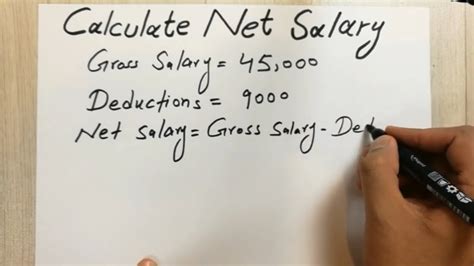 Calculate Net Salary
Gross Salary = 45,000
Deductions = 9000
Net Salary = Gross Salary - Ded